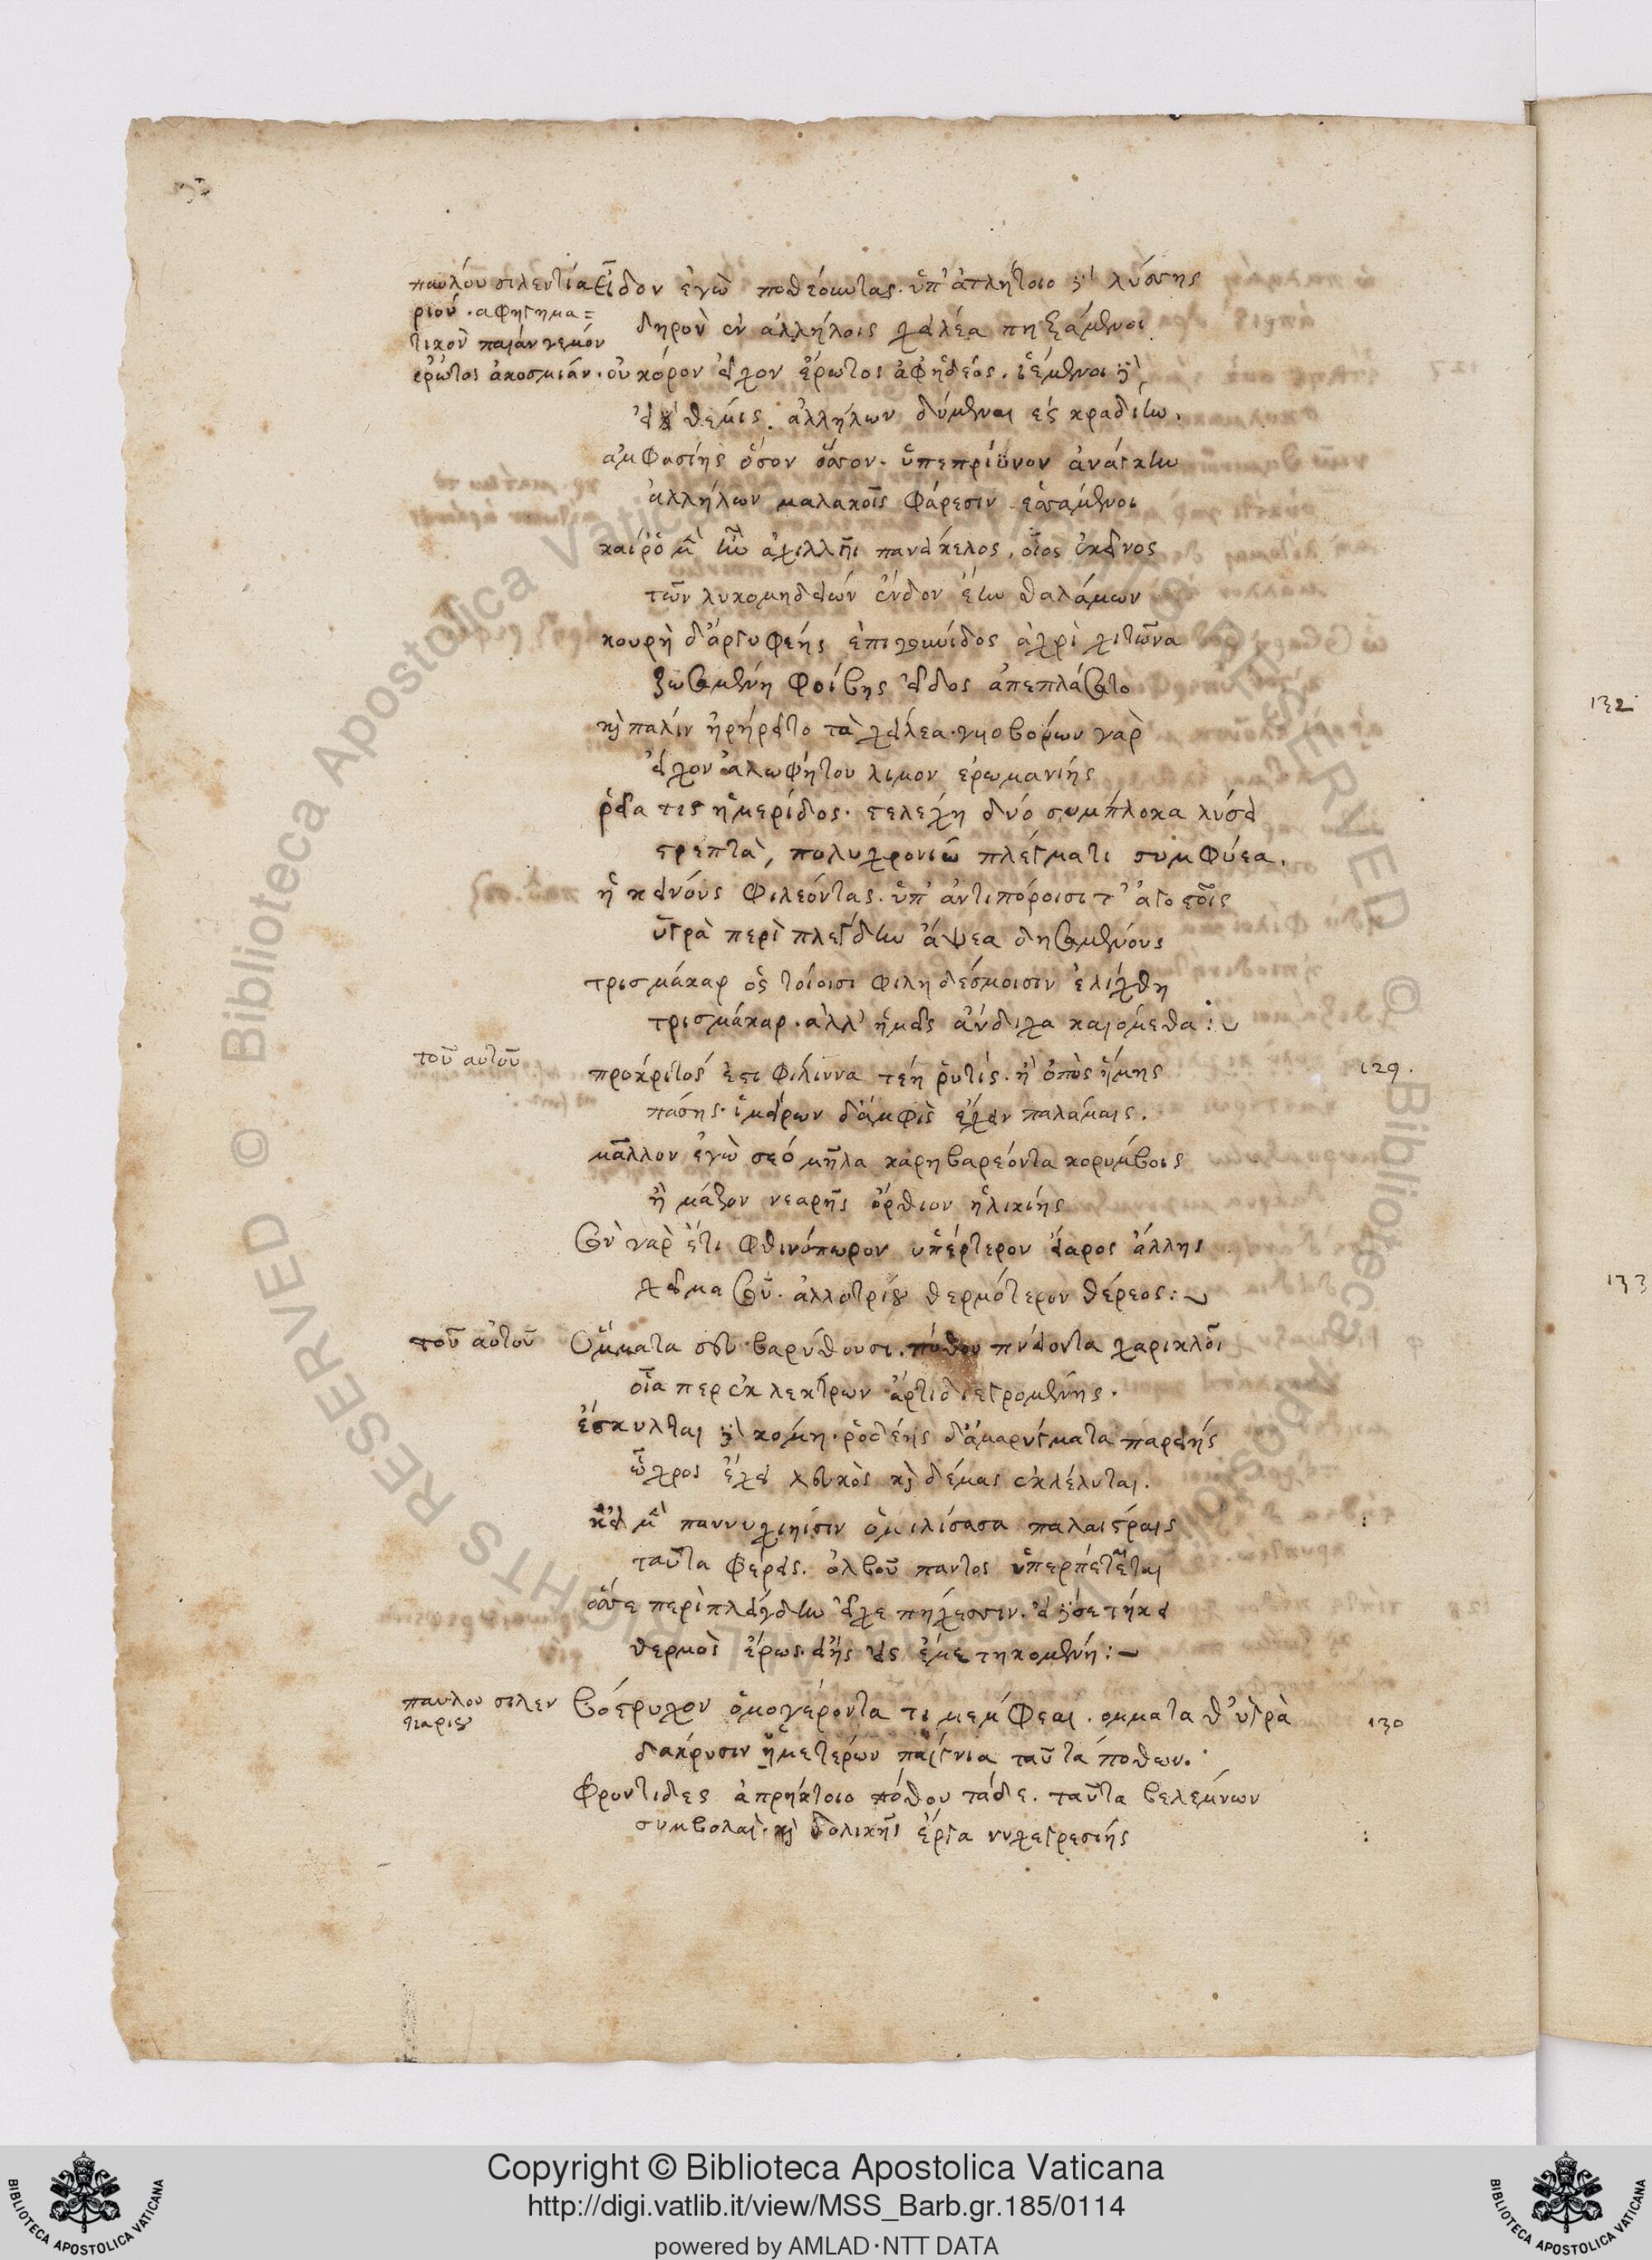 παύλου σιλεντία
ριου . αφηγημα=
τικον παιάν γεμόν
ἐρώτος ἀκοσμιάν .
Εἶδον ἐγὼ ποθέοντας . ὑπ' ἀτλήτοιο δὲ λύσσης
δηρὸν ἐν ἀλλήλοις χείλεα πηξάμενοι
οὐ κόρον εἶχον ἔρωτος ἀφειδέος . ἱέμενοι δὲ
εἰ θέμις . ἀλλήλων δύμεναι ἐς κραδίην .
ἀμφασίης ὅσον ὅσσον . ὑπεπρίϋνον ἀνάγκην
ἀλλήλων μαλακοῖς φάρεσιν ἑσσάμενοι
καί ῥ' ὁ μὲν ἦν ἀχιλλῆι πανείκελος , οἷος ἐκεῖνος
τῶν λυκομηδείων ἔνδον ἔην θαλάμων
κουρὴ δ' ἀργυφέης ἐπιγουνίδος ἀχρὶ χιτῶνα
ζωσαμένη φοίβης εἶδος ἀπεπλάσατο
καὶ παλίν ἠρήρειτο τὰ χείλεα . γυιοβόρων γὰρ
εἶχον ἀλωφήτου λιμον ἐρωμανίης
ῥεῖα τις ἡμερίδος . στελέχη δύο σύμπλοκα λύσει
στρεπτὰ , πολυχρονίω πλέγματι συμφύεα .
ἢ κείνους φιλέοντας . ὑπ' ἀντιπόροισι τ' ἀγοστοῖς
ὑγρὰ περὶ πλέγδην ἅψεα δησαμένους
τρισμάκαρ ὃς τοίοισι φιλη δέσμοισιν ἑλίχθη
τρισμάκαρ . ἀλλ' ἡμεῖς ἄνδιχα καιόμεθα :~
τοῦ αυτοῦ
προκριτός ἐστι φιλίννα τεὴ ῥυτίς . ἢ ὀπὸς ἥμης
129 .
πάσης . ἱμείρων δ' ἀμφὶς ἔχειν παλάμαις .
μᾶλλον ἐγὼ σεό μῆλα καρηβαρέοντα κορύμβοις
ἢ μάζον νεαρῆς ὄρθιον ἡλικίης
Σὸν γὰρ ἔτι φθινόπωρον ὑπέρτερον εἴαρος ἄλλης
χεῖμα σὸν . ἀλλοτρίου θερμότερον θέρεος :~
τοῦ αὐτοῦ
Ὄμματα σευ βαρύθουσι . πόθου πνείοντα χαρικλοῖ
οἷα περ ἐκ λεκτρων ἄρτι διεγρομένης .
ἔσκυλται δὲ κομη . ῥοδέης δ' ἀμαρυγματα παρειής
ὦχρος ἔχει λευκὸς καὶ δέμας ἐκλέλυται .
κεἰ μὲν παννυχιηίσιν ὁμιλίσασα παλαίστραις
ταῦτα φέρεις . ὀλβοῦ παντος ὑπερπέτεται
ὅσσε περὶπλέγδην εἶχε πήχεσσιν . εἰ δέ σε τήκει
θερμὸς ἔρως . εἴης εἰς ἐμε τηκομένη :~
παυλου σιλεν
τιαριου
βόστρυχον ὁμογέροντα τι μεμφεαι . ομματα θ' ὑγρὰ
130
δακρυσιν ἡμετερών παίγνια ταῦτα ποθων .
Φροντιδες ἀπρηκτοιο πόθου τάδε . ταῦτα βελεμνων
συμβολαὶ . καὶ δολικῆς ἔργα νυχεγρεσιής
132
133
Copyright © Biblioteca Apostolica Vaticana
http://digi.vatlib.it/view/MSS_Barb.gr.185/0114
powered by AMLAD·NTT DATA